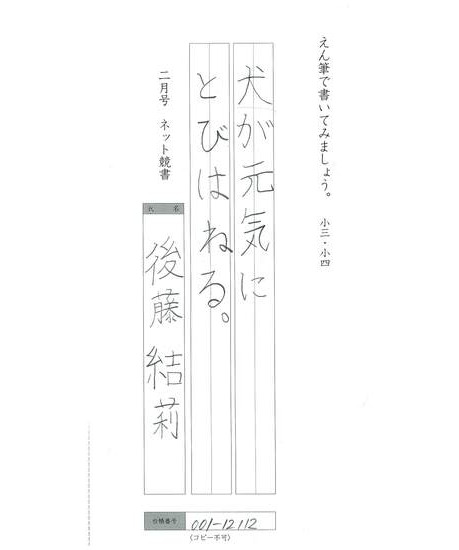 えん筆で書いてみましょう。 小三・小四
犬が元気に
とびはねる。
二月号 ネット競書
氏 名
後藤 結莉
会員番号 001-12112
(コピー不可)